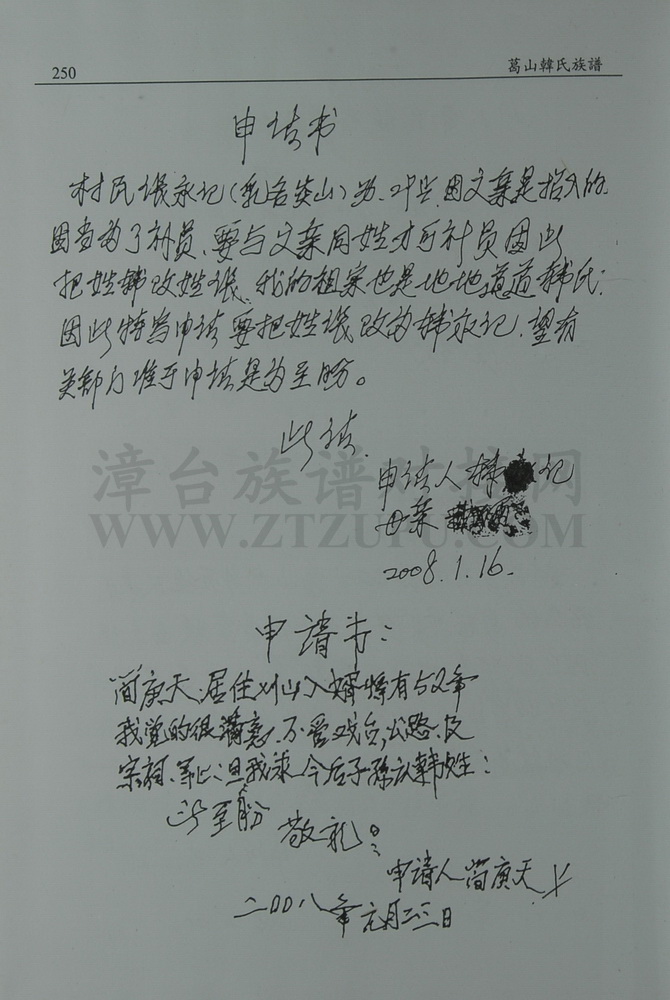 250
葛山韓氏族譜
申请书
村民 永记(乳名 山)因父亲是招入的
因当为了社员、要与父亲同姓才可社员因此
把姓韩改姓 我的祖家也是地地道道韩氏:
因此特为申请要把姓 改为韩永记.望有
关部门准予申请是为至盼。
此请.
申请人韩 记
母亲
2008.1.16.
申请书:
简庚天.居住 山入婿
我觉的很满意.不管戏台,公路.及
宗祠. 但我求今后子孙 韩姓:
此至盼
敬礼
申请人简庚天
二00八年元月二三日
漳台族谱对接网
WWW.ZTZUPU.COM